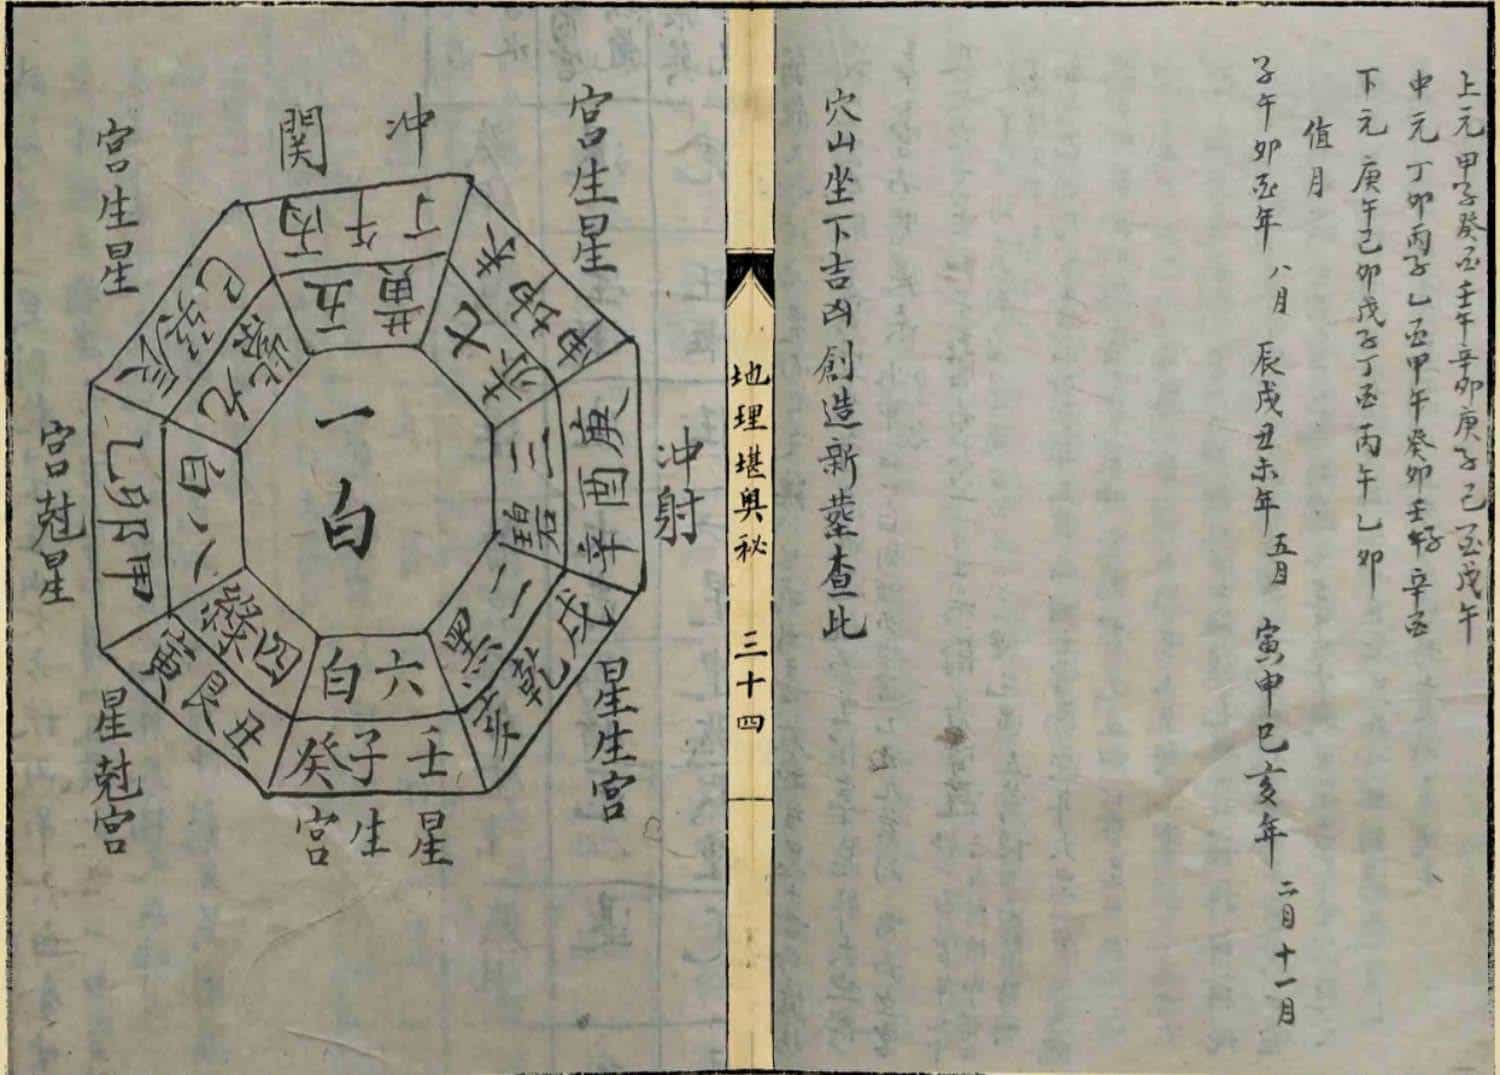 上元 甲子癸酉壬午辛卯庚子己酉戊午
中元 丁卯丙子乙酉甲午癸卯壬子辛酉
下元 庚午己卯戊子丁酉丙午乙卯
值月
子午卯酉年 八月 辰戌丑未年 五月 寅申巳亥年 二月十一月
穴山坐下吉凶創造新塋查此
地理堪輿秘 三十四
宮生星
冲
関
宮生星
宮尅星
星尅宮
星生宮
星生宮
冲射
丁午丙
未坤申
庚酉辛
戌乾亥
壬子癸
丑艮寅
甲卯乙
辰巽巳
五黄
七赤
三碧
二黑
六白
四綠
八白
九紫
一白